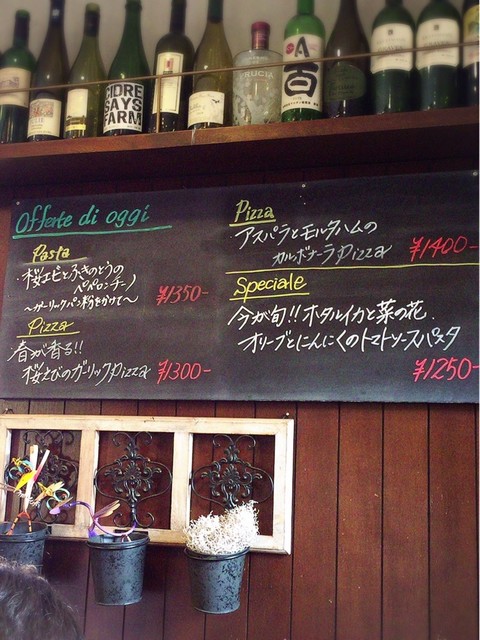 CIDRE
SAYS
FARM
FRUCIA
百
Offerte di oggi
Pasta
・桜エビとふきのとうの
ペペロンチーノ
〜ガーリックパン粉をかけて〜
¥1350-
Pizza
春が香る!!
桜えびのガーリックPizza
¥1300-
Pizza
アスパラとモルタハムの
カルボナーラPizza
¥1400-
Speciale
今が旬!! ホタルイカと菜の花
オリーブとにんにくのトマトソースパスタ
¥1250-